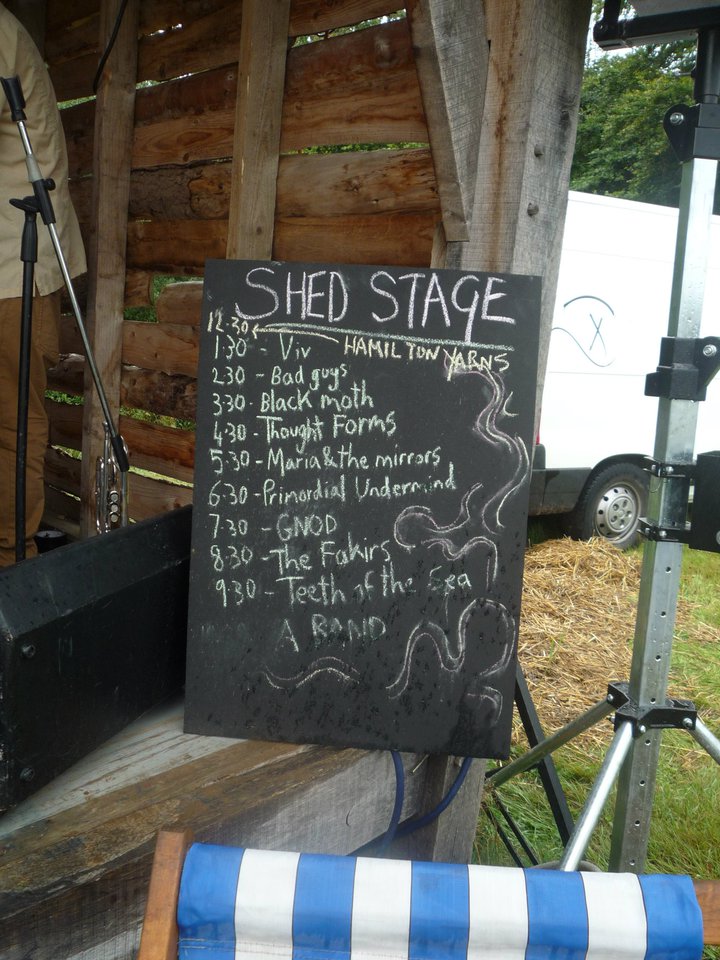 SHED STAGE
12.30 HAMILTON YARNS
1:30 - Viv
2:30 - Bad guys
3:30 - Black moth
4:30 - Thought Forms
5:30 - Maria & the mirrors
6:30 - Primordial Undermind
7:30 - GNOD
8:30 - The Fakirs
9:30 - Teeth of the Sea
A BAND